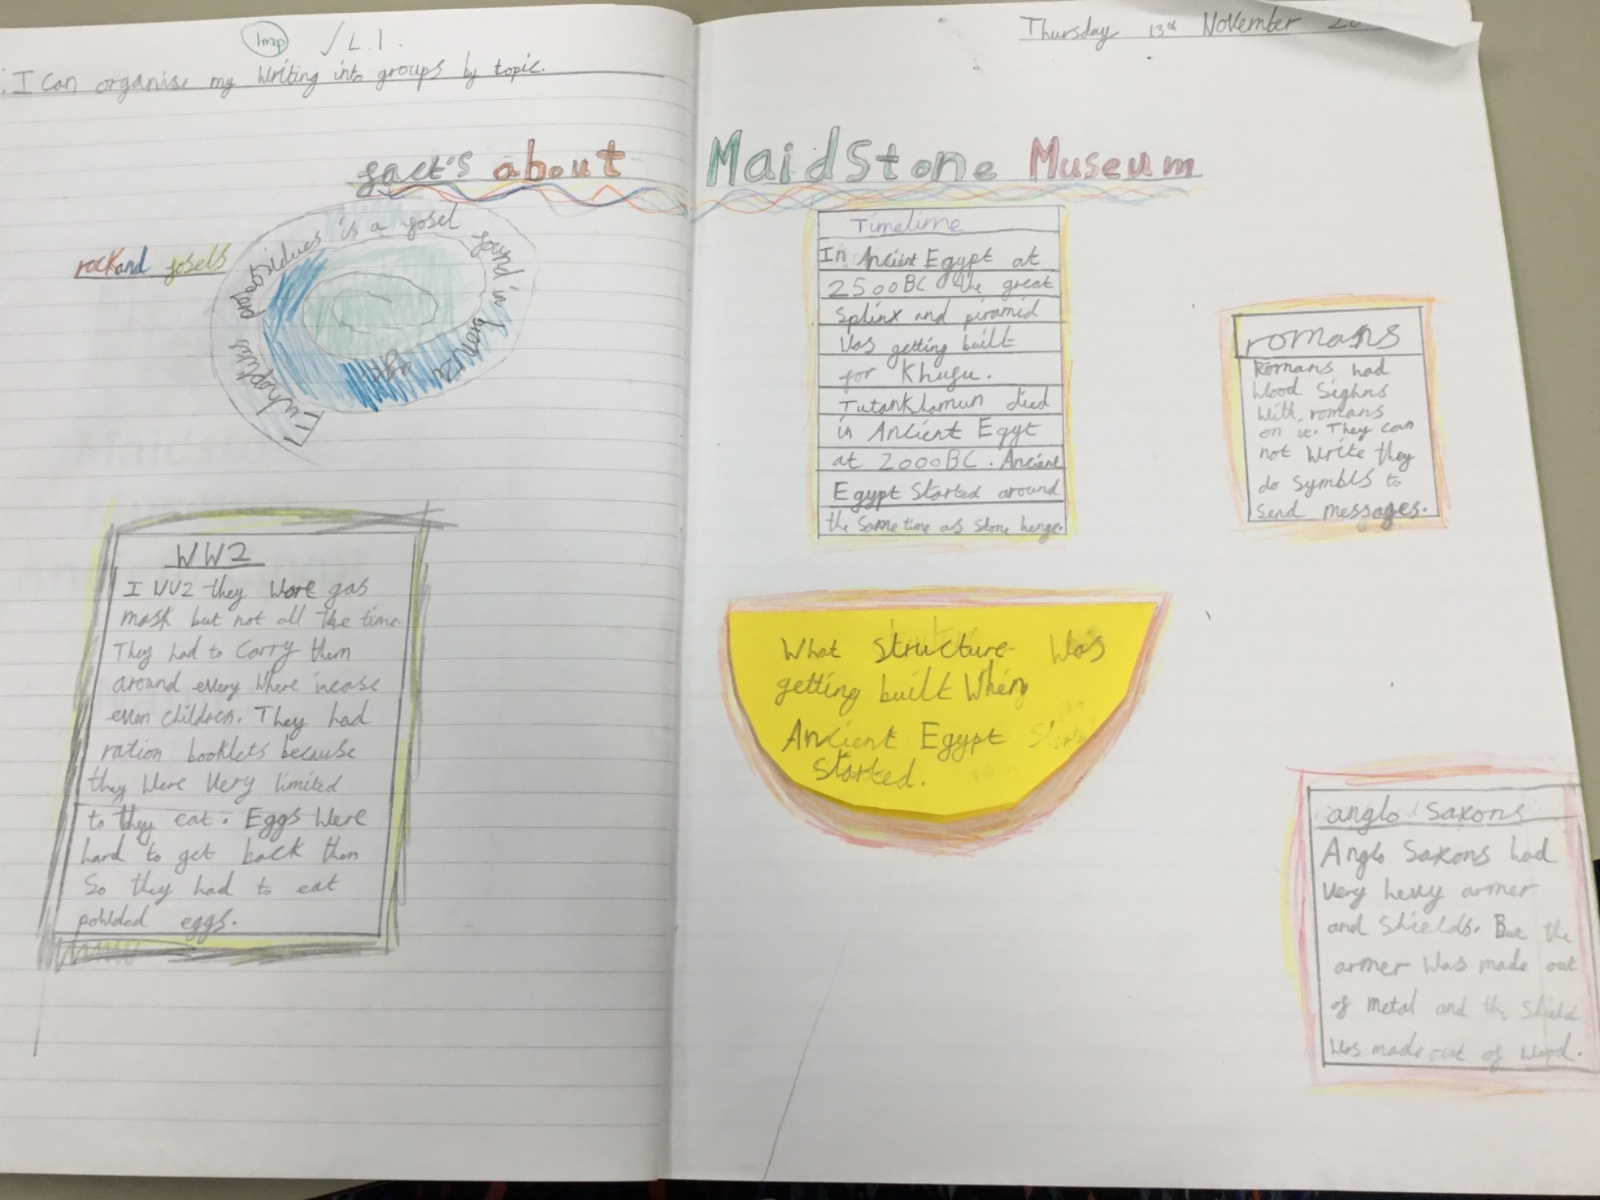 Imp √ L.I.
: I can organise my writing into groups by topic.
Thursday 13th November
fact's about MaidStone Museum
rock and fosels
is a fosel found in bronze age
WW2
I WW2 they wore gas
mask but not all the time.
They had to carry them
around every where incase
even children. They had
ration booklets because
they were very limited
to they eat. Eggs were
hard to get back then
So they had to eat
eggs.
Timelime
In Ancient Egypt at
2500BC the great
Splinx and piramid
was getting built
for Khufu.
Tutankhamun died
in Ancient Egyt
at 2000BC. Ancient
Egypt Started around
the same time as stone henge.
What structure was
getting built when
Ancient Egypt
started.
romans
Romans had
wood Sighns
with romans
on it. They can
not write they
do symbls to
send messages.
anglo saxons
Anglo Saxons had
very hevy armer
and Shields. But the
armer was made out
of metal and the Shield
was made out of wood.